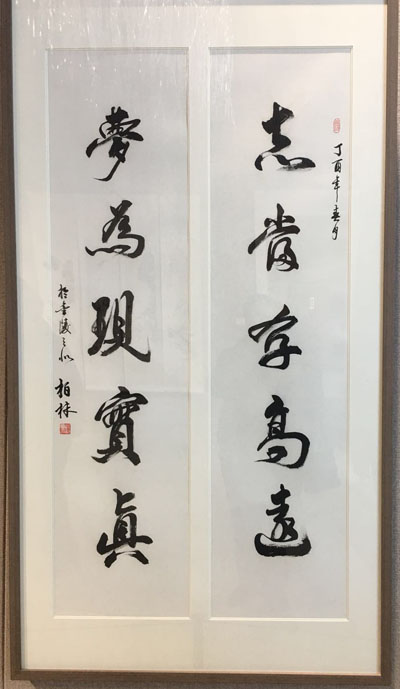 丁酉年春月
志當存高遠
夢為現實真
於金陵之
柏林